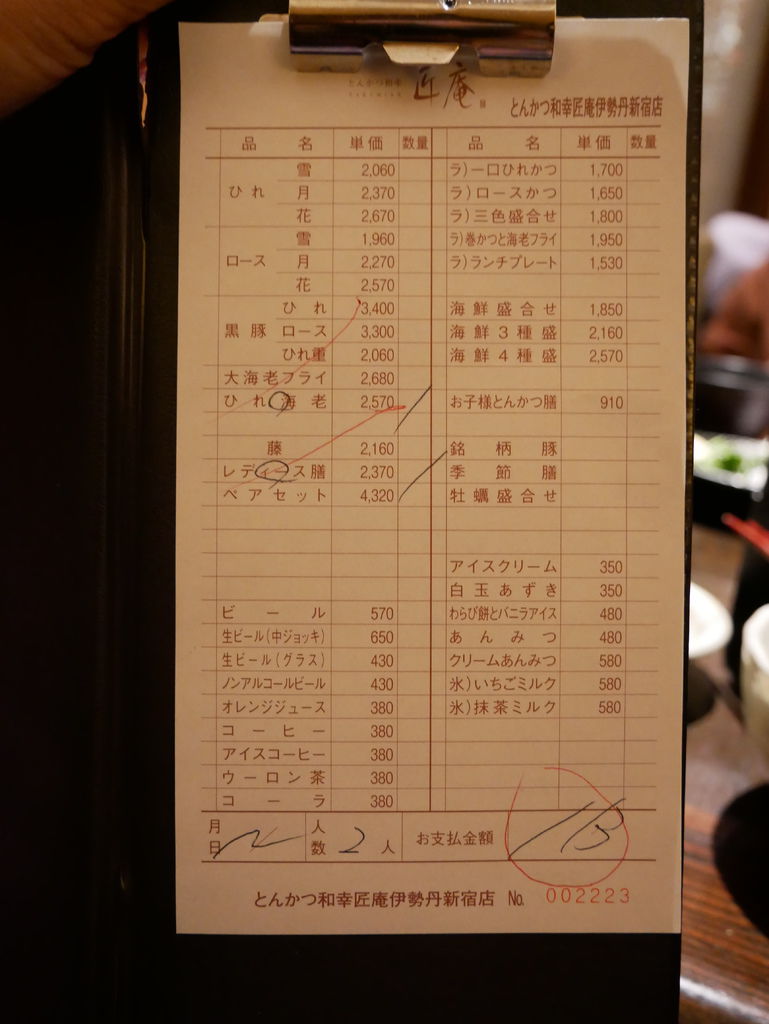 とんかつ和幸
匠庵
とんかつ和幸匠庵伊勢丹新宿店
品 名 単価 数量 品 名 単価 数量
雪 2,060 ラ)一口ひれかつ 1,700
ひれ 月 2,370 ラ)ロースかつ 1,650
花 2,670 ラ)三色盛合せ 1,800
雪 1,960 ラ)巻かつと海老フライ 1,950
ロース 月 2,270 ラ)ランチプレート 1,530
花 2,570
ひれ 3,400 海鮮盛合せ 1,850
黒豚 ロース 3,300 海鮮3種盛 2,160
ひれ重 2,060 海鮮4種盛 2,570
大海老フライ 2,680
ひれ海老 2,570 お子様とんかつ膳 910
藤 2,160 銘柄豚
レディース膳 2,370 季節膳
ペアセット 4,320 牡蠣盛合せ
アイスクリーム 350
白玉あずき 350
ビール 570 わらび餅とバニラアイス 480
生ビール(中ジョッキ) 650 あんみつ 480
生ビール(グラス) 430 クリームあんみつ 580
ノンアルコールビール 430 氷)いちごミルク 580
オレンジジュース 380 氷)抹茶ミルク 580
コーヒー 380
アイスコーヒー 380
ウーロン茶 380
コーラ 380
月日 人数 2人 お支払金額
とんかつ和幸匠庵伊勢丹新宿店 No. 002223